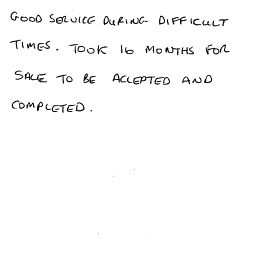 GOOD SERVICE DURING DIFFICULT
TIMES. TOOK 16 MONTHS FOR
SALE TO BE ACCEPTED AND
COMPLETED.